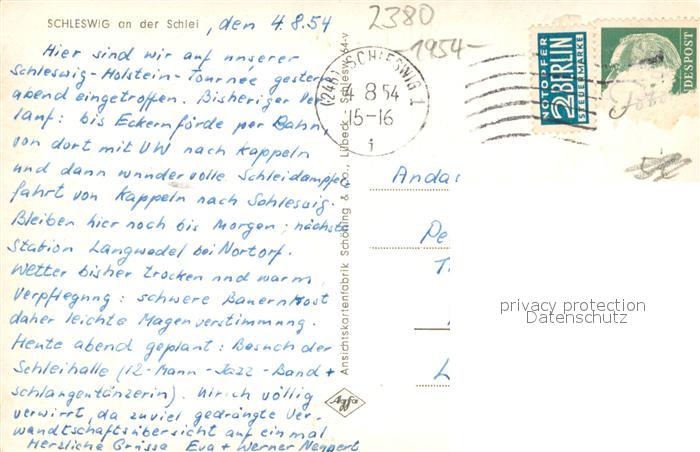 SCHLESWIG an der Schlei, den 4.8.54
Hier sind wir auf unserer
Schleswig-Holstein-Tournee gestern
abend eingetroffen. Bisheriger Ver-
lauf: bis Eckernförde per Bahn,
von dort mit VW nach Kappeln
und dann wundervolle Schleidampfer-
fahrt von Kappeln nach Schleswig.
Bleiben hier noch bis Morgen; nächste
Station Langwedel bei Nortorf.
Wetter bisher trocken und warm,
Verpflegung: schwere Bauernkost
daher leichte Magenverstimmung.
Heute abend geplant: Besuch der
Schleihalle (12-Mann-Jazz-Band +
Schlangentänzerin). Ulrich völlig
verwirrt, da zuviel gedrängte Ver-
wandtschaftsübersicht auf einmal
Herzliche Grüsse Eva + Werner
2380
1954-
(24b) SCHLESWIG 1
4 8 54
15-16
i
NOTOPFER
2 BERLIN
STEUERMARKE
NDESPOST
Ansichtskartenfabrik Schöning & Co., Lübeck - Schlesw. 64-v
Agfa
Anda
Pe
L
privacy protection
Datenschutz